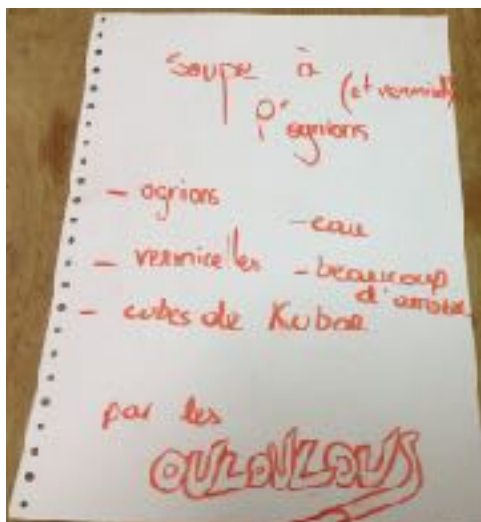 Soupe à
(et vermicel)
l'ognions
- ognions
- eau
- vermicelles
- beaucoup
d'amour
- cubes de Kubor
par les
OULOULOUS